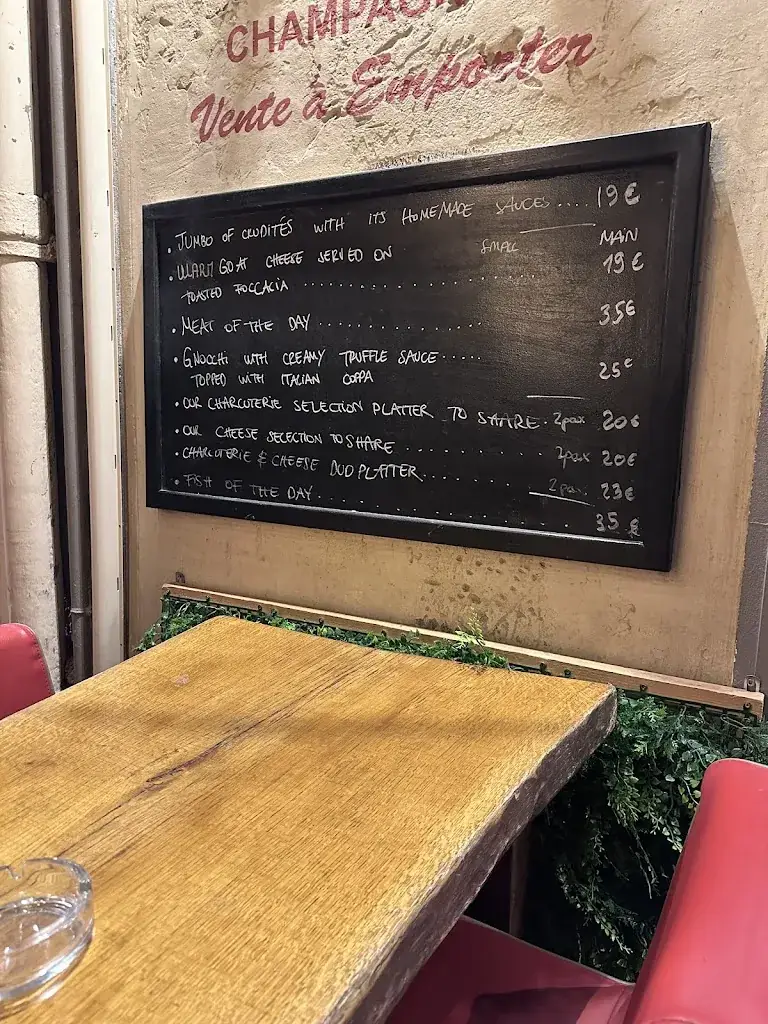 CHAMPAGN
Vente à Emporter
• JUMBO OF CRUDITÉS WITH ITS HOMEMADE SAUCES .... 19€
SMALL MAIN
• WARM GOAT CHEESE SERVED ON 19€
TOASTED FOCCACIA ..............
• MEAT OF THE DAY .............. 35€
• GNOCCHI WITH CREAMY TRUFFLE SAUCE ..... 25€
TOPPED WITH ITALIAN COPPA
• OUR CHARCUTERIE SELECTION PLATTER TO SHARE. 2pax 20€
• OUR CHEESE SELECTION TO SHARE .......... 2pax 20€
• CHARCUTERIE & CHEESE DUO PLATTER ....... 2pax 23€
• FISH OF THE DAY .............. 35€